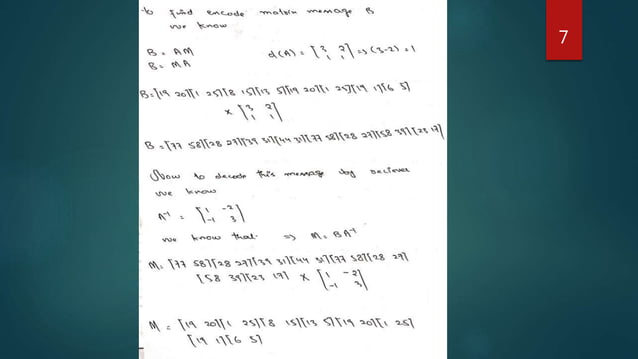 to find encode matrix message B
we know
B = AM d(A) = [3 2 => (3-2) = 1
1 1]
B = MA
B=[19 20][1 25][8 15][13 5][19 20][1 25][19 1][6 5]
x [3 2
1 1]
B = [77 58][28 27][39 31][44 31][77 58][28 27][58 39][23 17]
Now to decode this message by reciever
we know
A⁻¹ = [1 -2
-1 3]
we know that => M = BA⁻¹
M= [77 58][28 27][39 31][44 31][77 58][28 27]
[58 39][23 17] x [1 -2
-1 3]
M = [19 20][1 25][8 15][13 5][19 20][1 25]
[19 1][6 5]
7